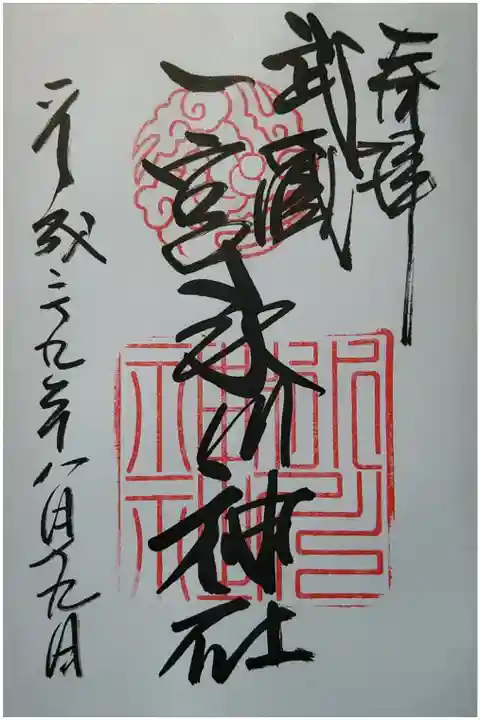 奉拝
武蔵
一宮氷川神社
平成二十九年八月十九日
氷川
神社